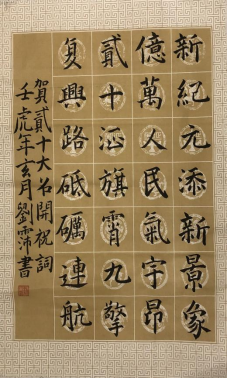 新紀元添新景象
億萬人民氣宇昂
貳十征旗霄九擎
复興路砥礪連航
賀貳十大召開祝詞
壬虎年亥月劉霈書